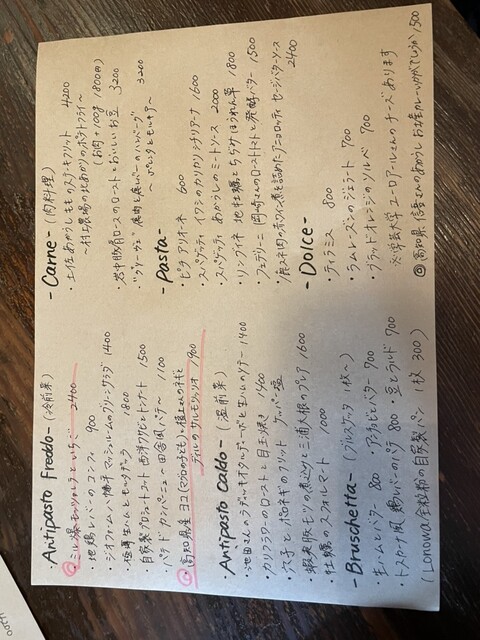 - Antipasto Freddo - (冷前菜)
・ミルク場モッツァレラといちご 2400
・地鶏レバーのコンフィ 900
・ジオファーム八幡平マッシュルームのグリーンサラダ 1400
・極薄生ハムとモルタデッラ 1800
・自家製プロシュートコット 西洋ワサビとトンナート 1500
・パテ ド カンパーニュ 田舎風パテ〜 1100
・高知県産ヨコ(マグロの子ども)、植木さんのネギと
ディルのサルモリッリオ 900
- Antipasto Caldo - (温前菜)
・池田さんのラディッキオタルディーボと生ハムのソテー 1400
・カリフラワーのローストと目玉焼き 1400
・穴子とポロネギのフリット ケッパー塩
・蝦夷豚モツの煮込みと三浦大根のプレア 1600
・牡蠣のスフォルマート 1000
- Bruschetta - (ブルスケッタ 1枚〜)
・生ハムとバター 800 アンチョビとバター 700
・トスカーナ風 鶏レバーのパテ 800 豆とラルド 700
(Lonowa全粒粉の自家製パン 1枚 300)
- Carne - (肉料理)
・土佐あかうしもものステーキフリット 4200
〜村上農場の北あかりのポテトフライ〜
(お肉 + 100g 1800円)
・岩中豚肩ロースのローストとおいしいお豆 3200
・ヴァリージェ 鹿肉と鹿レバーのハンバーグ
〜ポレンタとモレッキ〜 3200
- Pasta -
・ピチ アリオネ 600
・スパゲッティ イワシのカリカリシチリアーナ 1600
・スパゲッティ あかうしのミートソース 2000
・リングイネ 地牡蠣とちぢみほうれん草 1800
・フェデリーニ 岡崎さんのローストトマトと発酵バター 1500
・鹿スネ肉の赤ワイン煮を詰めたアニョロッティ セージバターソース 2400
- Dolce -
・ティラミス 800
・ラムレーズンのジェラート 700
・ブラッドオレンジのソルベ 700
※学芸大学 ユーロアールさんのチーズあります
@高知県 信吾さんのあかうし お生カレーいかがでしょうか 1500